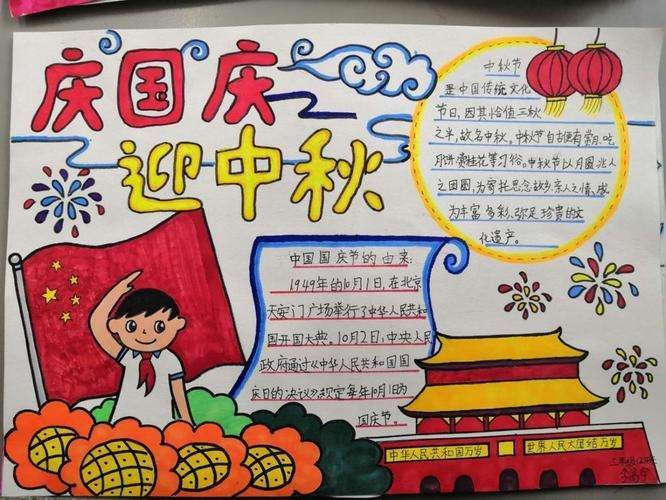 庆国庆
迎中秋
中秋节
是中国传统文化
节日,因其恰值三秋
之半,故名中秋。中秋节自古便有赏月、吃
月饼、赏桂花等习俗。中秋节以月圆兆人
之团圆,为寄托思念故乡,亲人之情,成
为丰富多彩、弥足珍贵的文
化遗产。
中国国庆节的由来:
1949年的10月1日,在北京
天安门广场举行了中华人民共和
国开国大典。10月2日,中央人民
政府通过《中华人民共和国国
庆日的决议》规定每年10月1日为
国庆节。
中华人民共和国万岁
世界人民大团结万岁